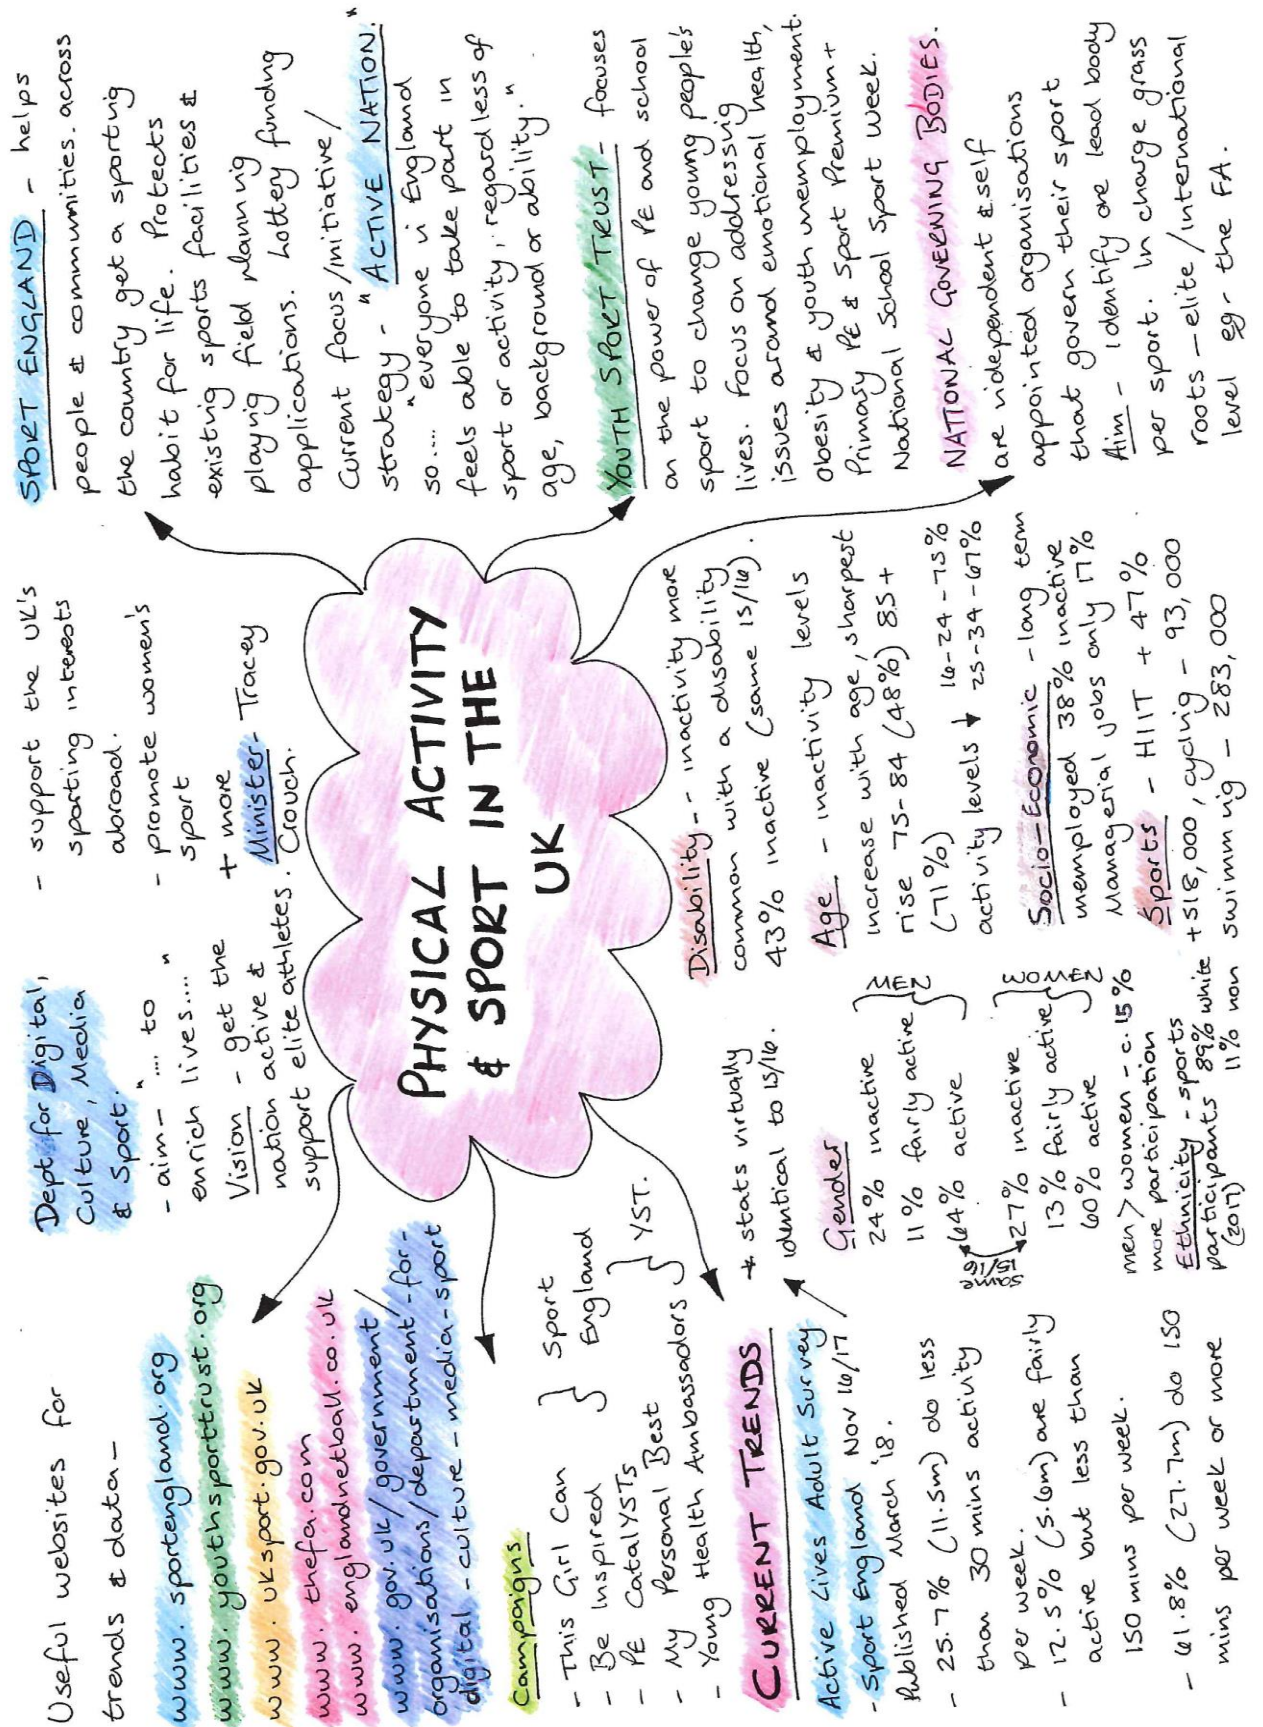 Useful websites for
trends & data -
www. sportengland.org
www. youthsporttrust.org
www. uksport.gov.uk
www. thefa.com
www. englandnetball.co.uk
www. gov.uk/government/
organisations/department-for-
digital-culture-media-sport
Campaigns
- This Girl Can } Sport
- Be Inspired England
- PE CatalYSTs
- My Personal Best } YST.
- Young Health Ambassadors
CURRENT TRENDS
Active Lives Adult Survey
- Sport England Nov 16/17
Published March '18.
- 25.7% (11.5m) do less
than 30 mins activity
per week.
- 12.5% (5.6m) are fairly
active but less than
150 mins per week.
- 61.8% (27.7m) do 150
mins per week or more
Dept for Digital,
Culture, Media
& Sport.
- aim - "..... to
enrich lives...."
Vision - get the
nation active &
support elite athletes.
- support the UK's
sporting interests
abroad.
- promote women's
sport
+ more
Minister - Tracey
Crouch.
PHYSICAL ACTIVITY
& SPORT IN THE
UK
* stats virtually
identical to 15/16.
Gender
24% inactive
11% fairly active } MEN
64% active
same
15/16
27% inactive
13% fairly active } WOMEN
60% active
men > women - c.15%
more participation
Ethnicity - sports
participants 89% white
(2017) 11% non
Disability - inactivity more
common with a disability
43% inactive (same 15/16).
Age - inactivity levels
increase with age, sharpest
rise 75-84 (48%) 85+
(71%)
activity levels ↓ 16-24 - 75%
25-34 - 67%
Socio-Economic - long term
unemployed 38% inactive
Managerial jobs only 17%
Sports - HIIT + 47%
+ 518,000, cycling - 93,000
swimming - 283,000
SPORT ENGLAND - helps
people & communities across
the country get a sporting
habit for life. Protects
existing sports facilities &
playing field planning
applications. Lottery funding
Current focus/initiative/
strategy - "ACTIVE NATION."
"everyone in England
so.... feels able to take part in
sport or activity, regardless of
age, background or ability."
YOUTH SPORT TRUST - focuses
on the power of PE and school
sport to change young people's
lives. Focus on addressing
issues around emotional health,
obesity & youth unemployment.
Primary PE & Sport Premium +
National School Sport Week.
NATIONAL GOVERNING BODIES.
are independent & self
appointed organisations
that govern their sport
Aim - identify one lead body
per sport. In charge grass
roots - elite/international
level eg - the FA.